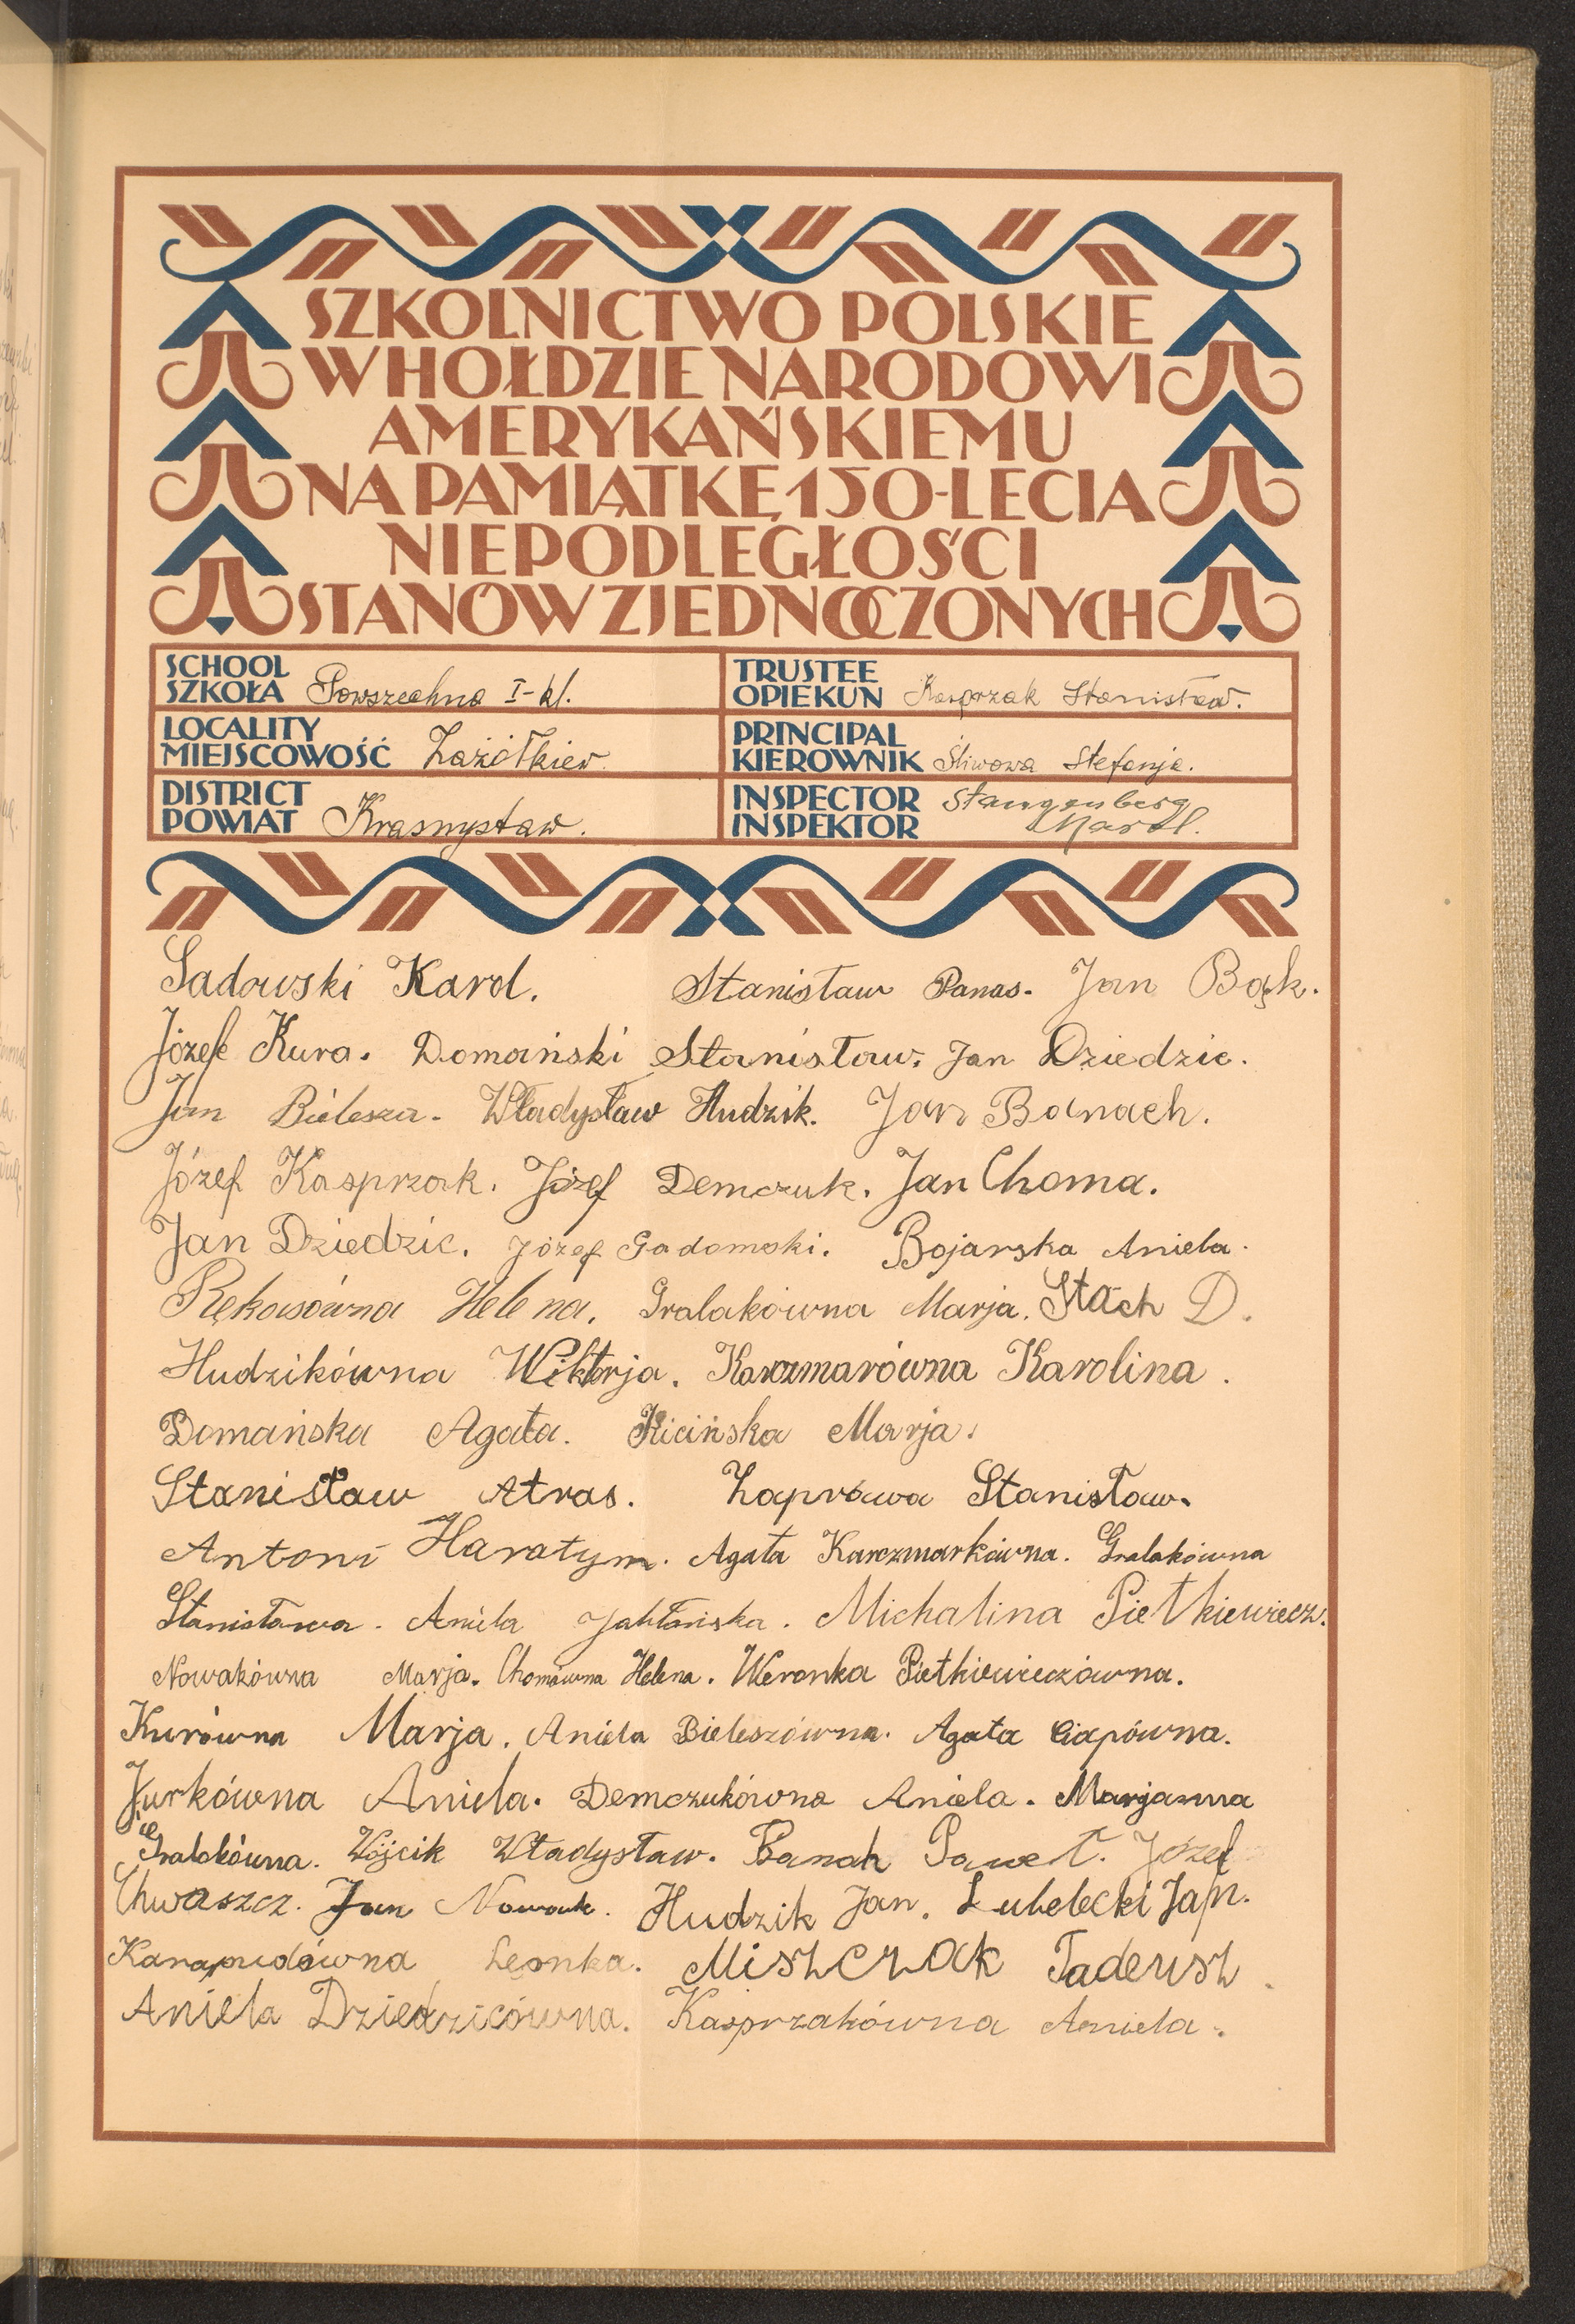 SZKOLNICTWO POLSKIE
W HOŁDZIE NARODOWI
AMERYKAŃSKIEMU
NA PAMIĄTKĘ 150-LECIA
NIEPODLEGŁOŚCI
STANÓW ZJEDNOCZONYCH
SCHOOL
SZKOŁA Powszechna I-kl.
TRUSTEE
OPIEKUN Kasprzak Stanisław.
LOCALITY
MIEJSCOWOŚĆ Zażółkiew.
PRINCIPAL
KIEROWNIK Śliwowa Stefanja.
DISTRICT
POWIAT Krasnystaw.
INSPECTOR
INSPEKTOR Stangenberg
Karol.
Sadowski Karol. Stanisław Panas. Jan Bąk.
Józef Kura. Domański Stanisław. Jan Dziedzic.
Jan Bielesza. Władysław Hudzik. Jan Banach.
Józef Kasprzak. Józef Demczuk. Jan Choma.
Jan Dziedzic. Józef Gadomski. Bojarska Aniela.
Rękasówna Helena. Gralakówna Marja. Stach D.
Hudzikówna Wiktorja. Karczmarówna Karolina.
Domańska Agata. Kicińska Marja.
Stanisław Atras. Zaprawa Stanisław.
Antoni Haratym. Agata Karczmarkówna. Gralakówna
Stanisława. Aniela Jabłońska. Michalina Pietkiewiecz.
Nowakówna Marja. Chomówna Helena. Weronka Pietkiewieczówna.
Kurówna Marja. Aniela Bieleszówna. Agata Ciapówna.
Jurkówna Aniela. Demczukówna Aniela. Marjanna
Gralakówna. Wójcik Władysław. Banah Paweł. Józef
Chwaszcz. Jan Nowak. Hudzik Jan. Lubelecki Jan.
Karapudówna Leonka. Miszczak Tadeusz.
Aniela Dziedzicówna. Kasprzakówna Aniela.